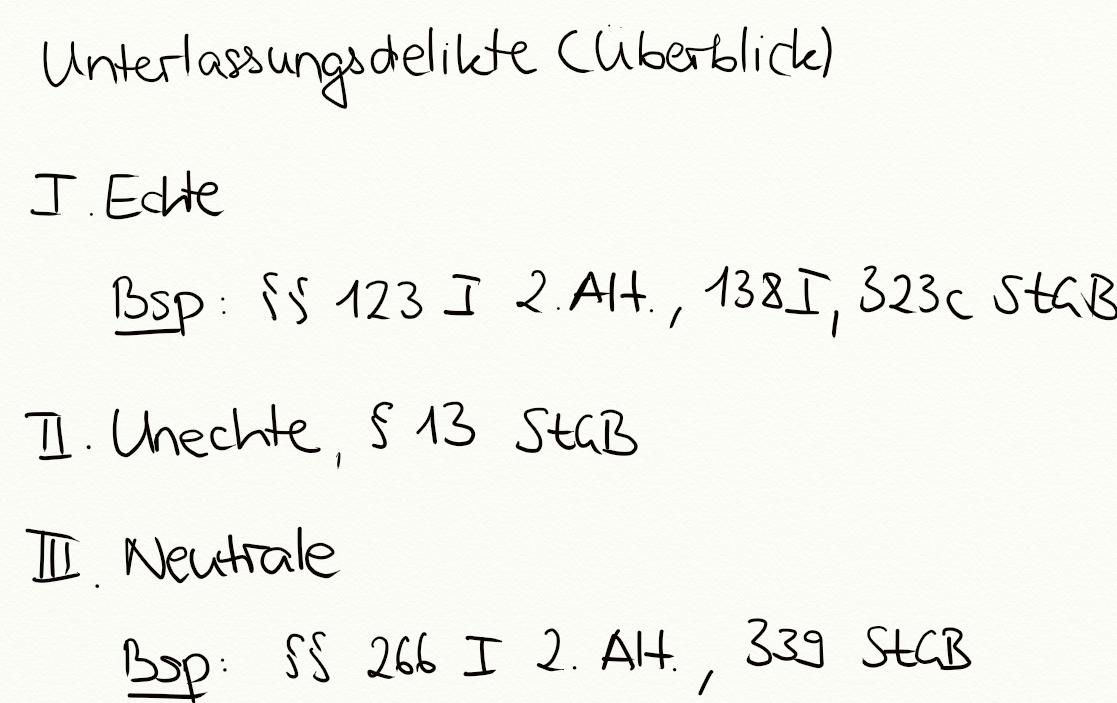 Unterlassungsdelikte (Überblick)
I. Echte
Bsp: §§ 123 I 2. Alt., 138 I, 323c StGB
II. Unechte, § 13 StGB
III. Neutrale
Bsp: §§ 266 I 2. Alt., 339 StGB